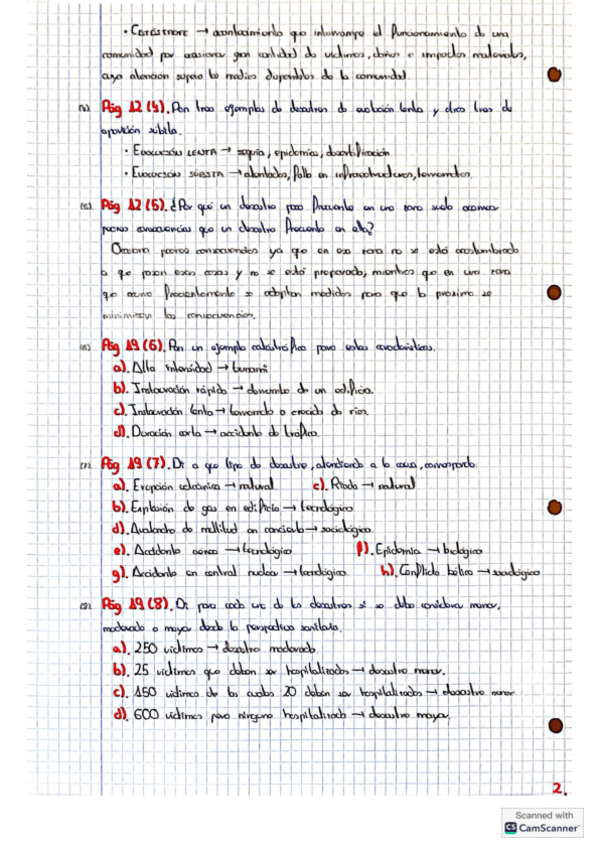 · CATÁSTROFE → acontecimiento que interrumpe el funcionamiento de una
comunidad por ocasionar gran cantidad de víctimas, daños e impactos materiales,
cuya atención supera los medios disponibles de la comunidad
(4) Pág 12 (4). Pon tres ejemplos de desastres de evolución lenta y otros tres de
aparición súbita.
· EVOLUCIÓN LENTA → sequía, epidemias, desertificación
· EVOLUCIÓN SÚBITA → atentados, fallo en infraestructuras, terremotos.
(5) Pág 12 (5). ¿Por qué un desastre poco frecuente en una zona suele ocasionar
peores consecuencias que un desastre frecuente en ella?
Ocasiona peores consecuencias ya que en esa zona no se está acostumbrado
a que pasen esas cosas y no se está preparado, mientras que en una zona
que ocurre frecuentemente se adoptan medidas para que la próxima se
minimicen las consecuencias.
(6) Pág 19 (6). Pon un ejemplo catastrófico para estas características.
a). Alta intensidad → tsunami
b). Instauración rápida → derrumbe de un edificio.
c). Instauración lenta → terremoto o crecida de ríos.
d). Duración corta → accidente de tráfico.
(7) Pág 19 (7). Di a que tipo de desastre, atendiendo a la causa, corresponde.
a). Erupción volcánica → natural c). Riada → natural
b). Explosión de gas en edificio → tecnológico
d). Avalancha de multitud en concierto → sociológico.
e). Accidente aéreo → tecnológico. f). Epidemia → biológico
g). Accidente en central nuclear → tecnológico. h). Conflicto bélico → sociológico
(8) Pág 19 (8). Di para cada uno de los desastres si se debe considerar menor,
moderado o mayor desde la perspectiva sanitaria.
a). 250 víctimas → desastre moderado.
b). 25 víctimas que deben ser hospitalizadas → desastre menor.
c). 150 víctimas de las cuales 20 deben ser hospitalizadas → desastre menor
d). 600 víctimas pero ninguna hospitalizada → desastre mayor.
2.
Scanned with
CS CamScanner